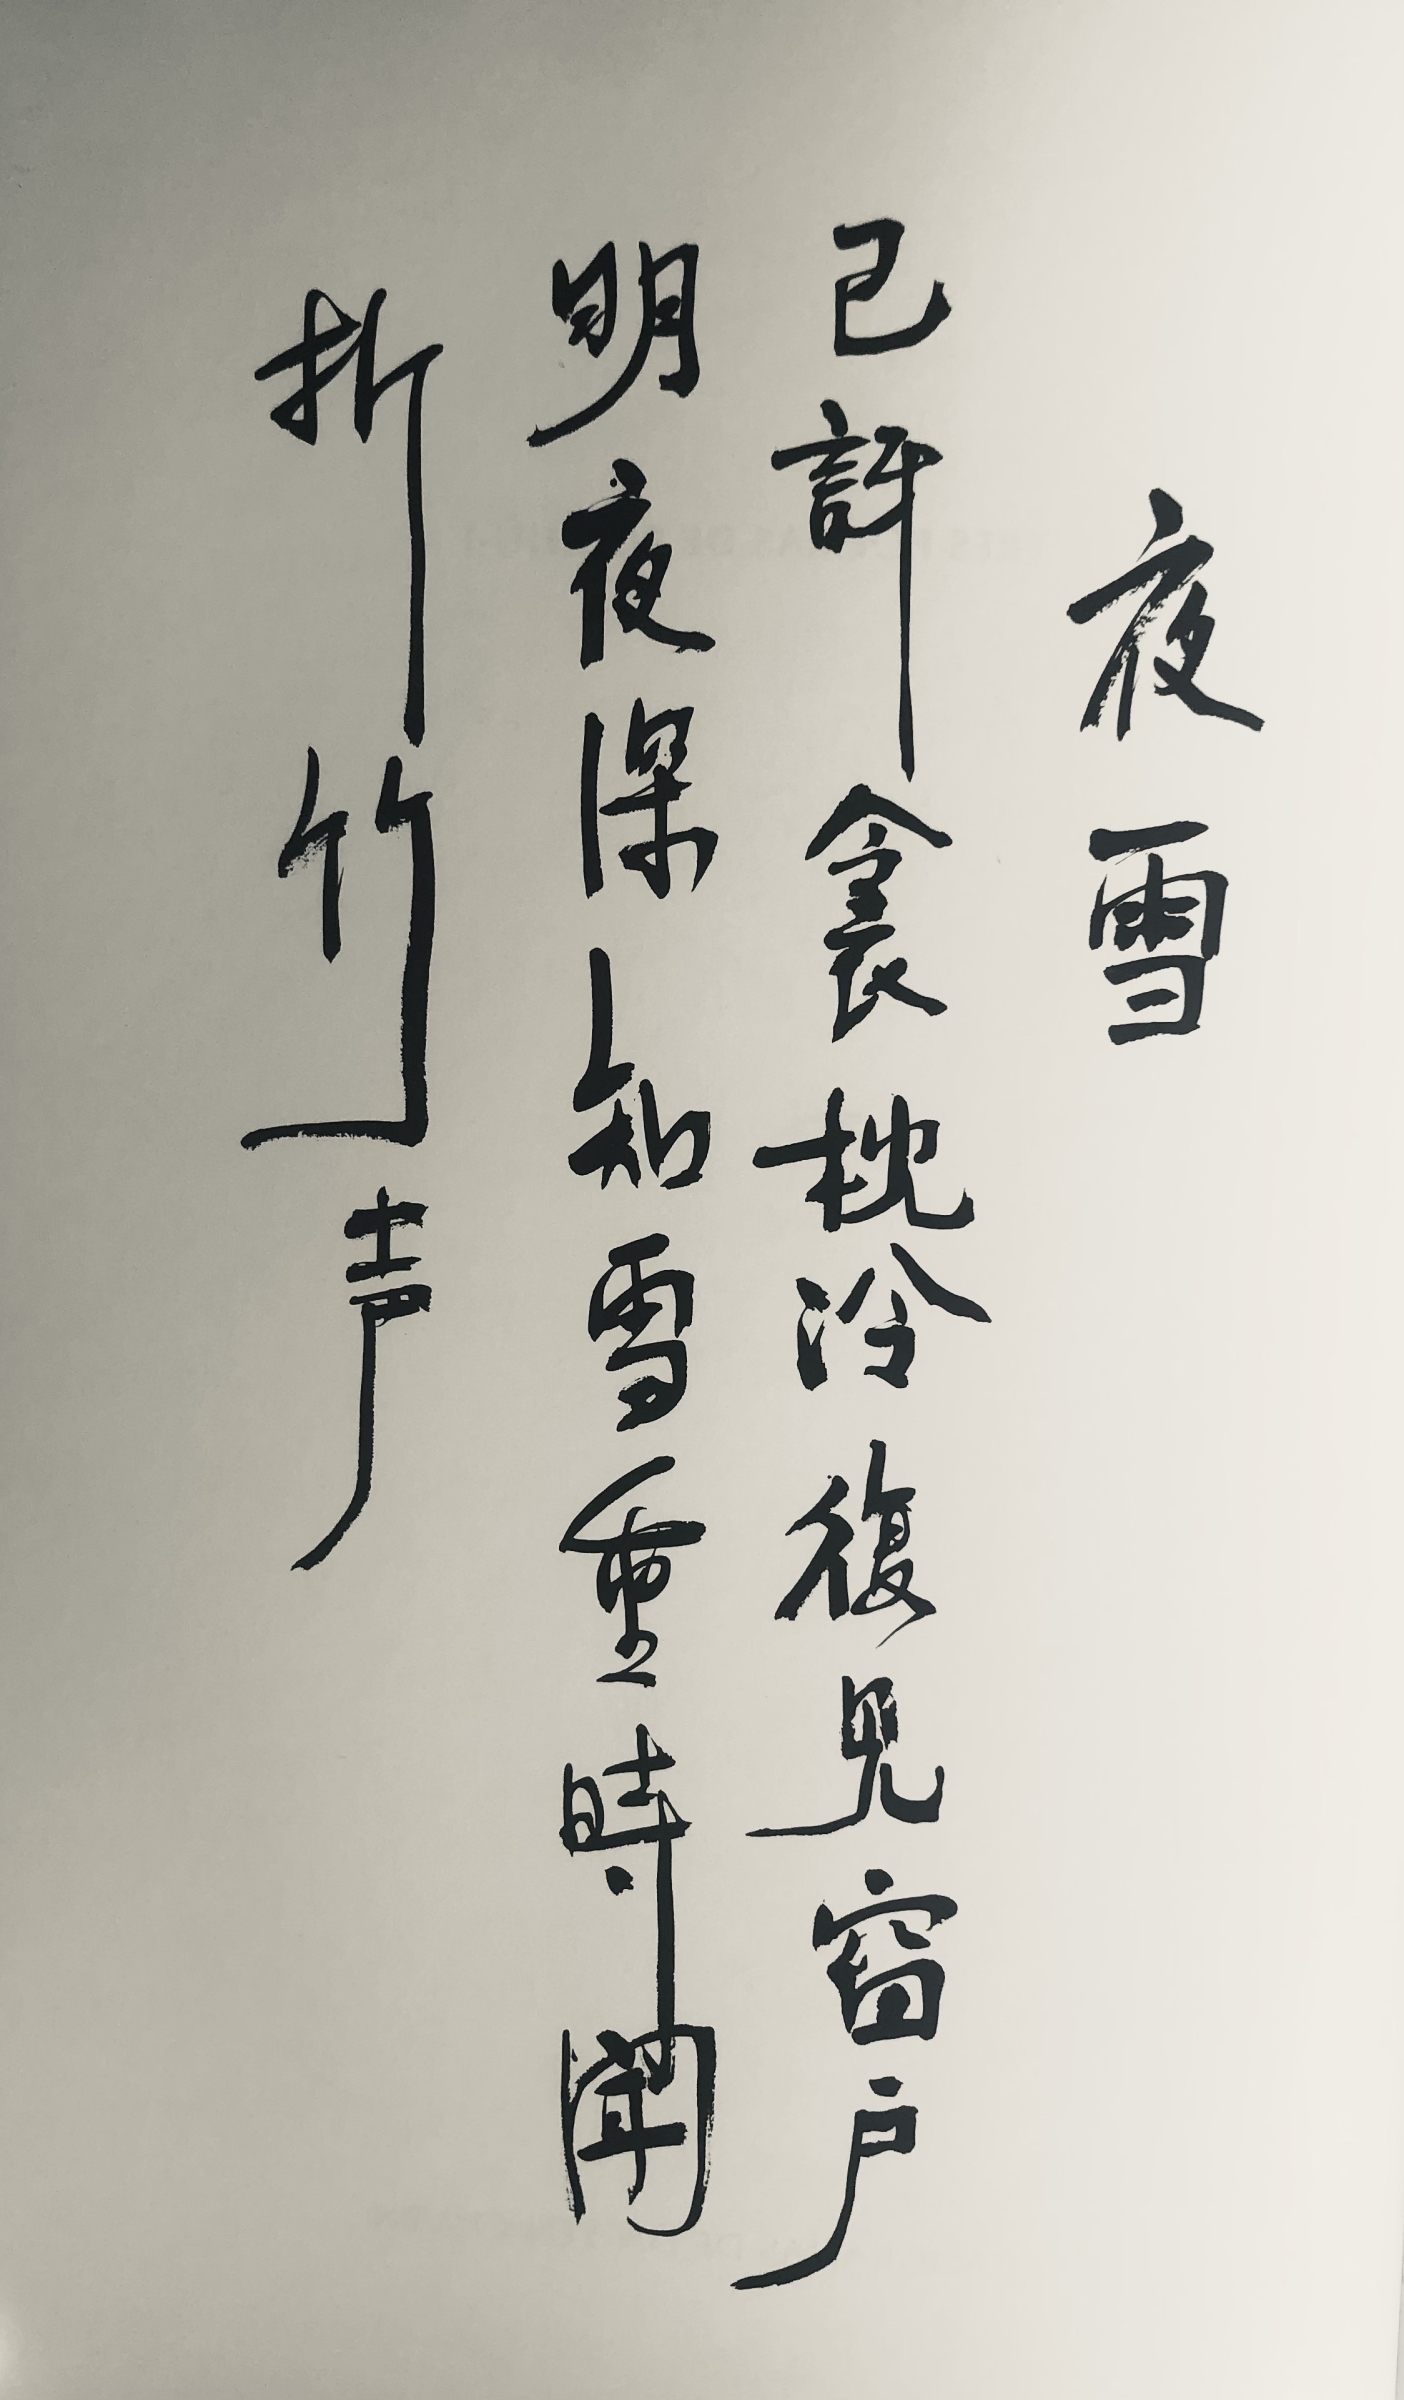 夜雪
已訝衾枕冷復見窗户
明夜深知雪重時聞
折竹声